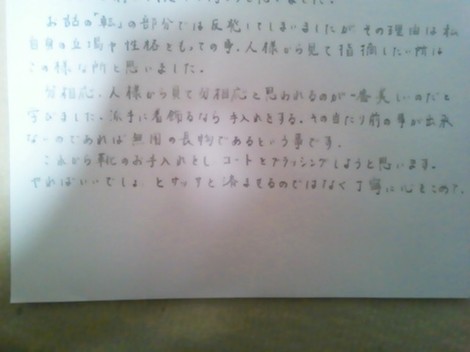 お話の「転」の部分では反発してしまいましたが その理由は私
自身の立場や性格ともっての事、人様から見て指摘したい所は
この様な所と思いました。
分相応、人様から見て分相応と思われるのが一番美しいのだと
学びました。派手に着飾るなら手入れとする。その当たり前の事が出来
ないのであれば無用の長物であるという事です。
これから靴のお手入れとし コートとブラッシングしようと思います。
やればいいでしょ とササッと済ませるのではなく丁寧に心をこめて。